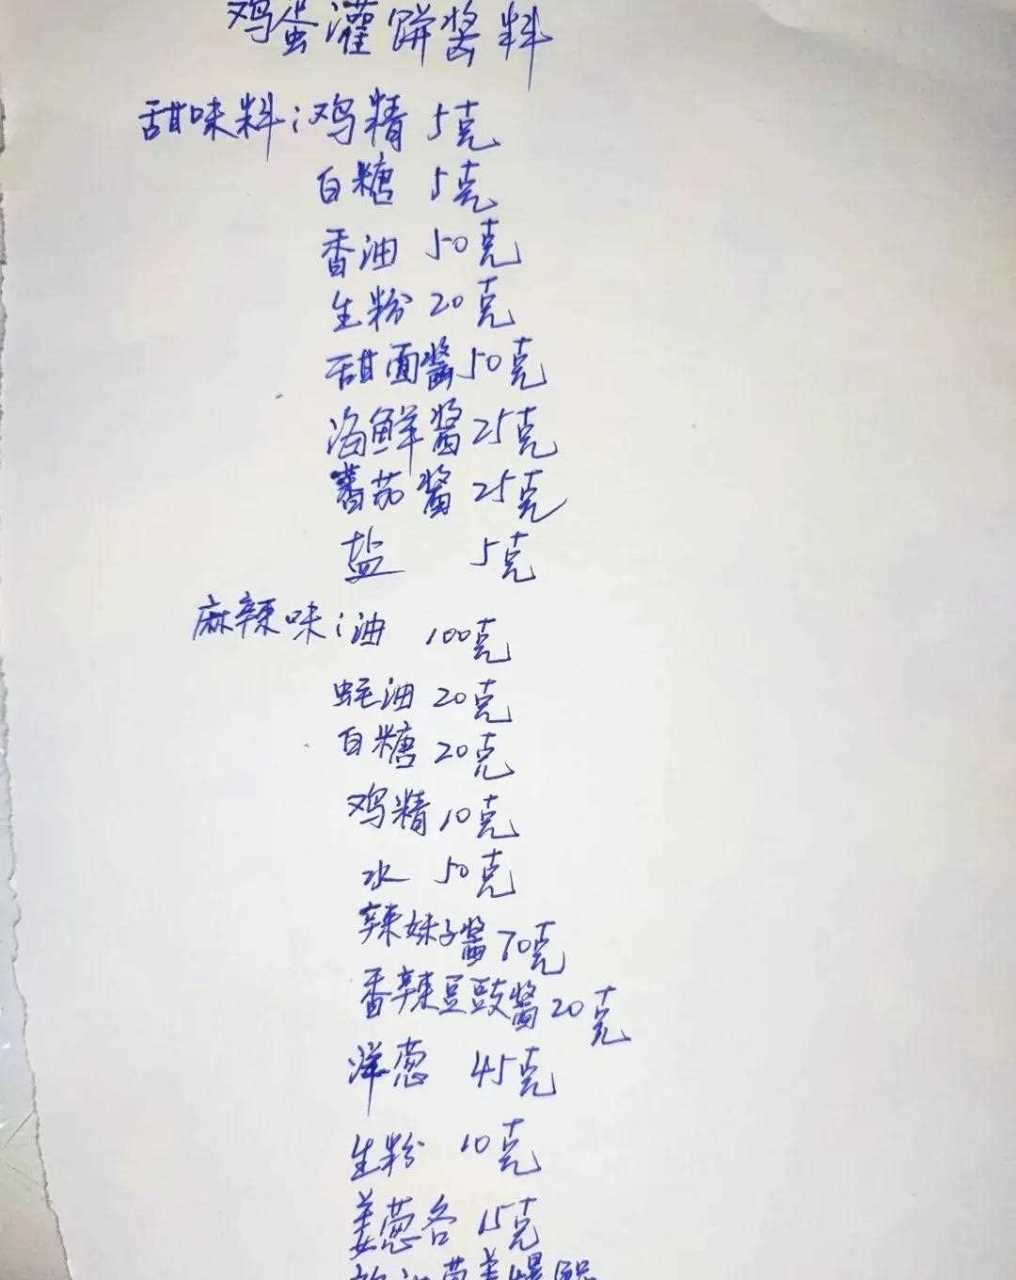 鸡蛋灌饼酱料
甜味料:鸡精 5克
白糖 5克
香油 50克
生粉 20克
甜面酱 50克
海鲜酱 25克
蕃茄酱 25克
盐 5克
麻辣味:油 100克
蚝油 20克
白糖 20克
鸡精 10克
水 50克
辣妹子酱 70克
香辣豆豉酱 20克
洋葱 45克
生粉 10克
姜葱各 15克